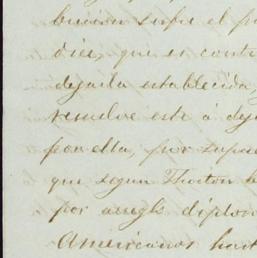 bucion sufra el p
dies, que en contr
dejaila establecida,
resuelve este á dej
por ella, por supu
que segun Thorton h
por arregls diplom
Americanos hast